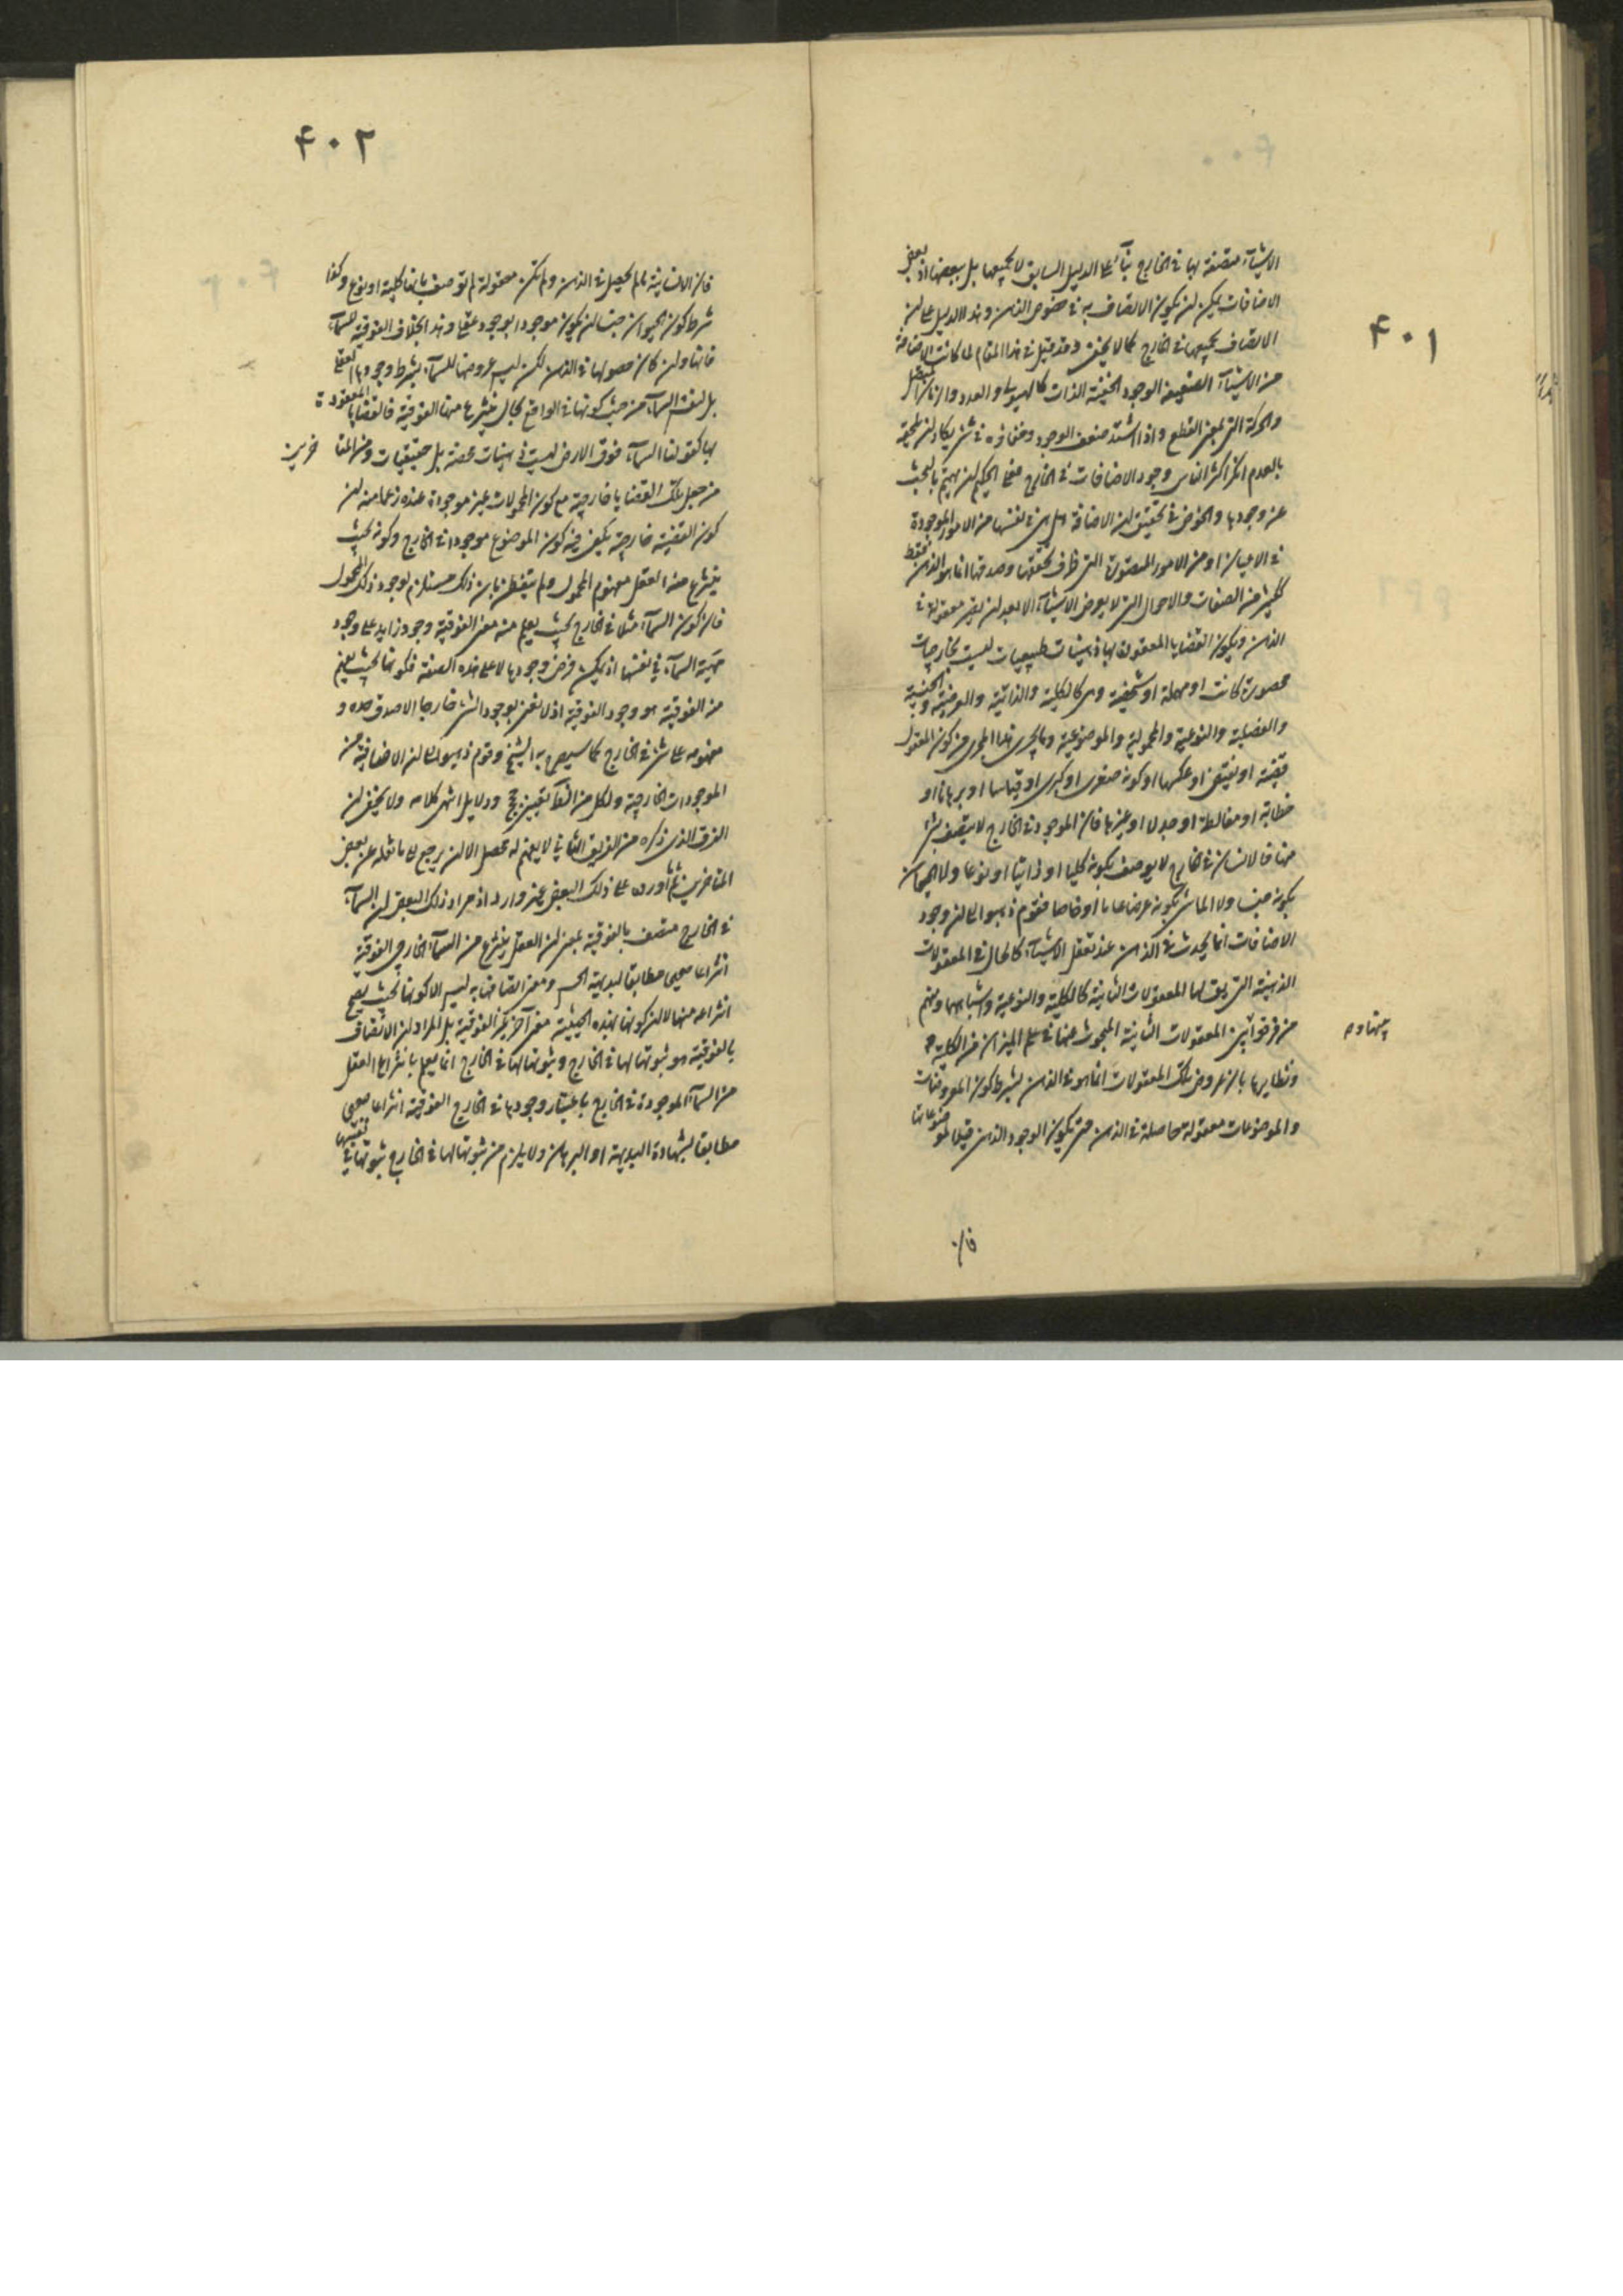 ۴۰۱
الاشیآء متصفة بها فی الخارج بنآء علی الدلیل السابق لا بجمیعها بل ببعضها اذ بعض
الاضافات یمکن ان یکون الاتصاف به فی خصوص الذهن و هذا الدلیل علی ان
الاتصاف بجمیعها فی الخارج کما لا یخفی و قد قیل فی هذا المقام لما کانت الاضافة
من الاشیآء الضعیفة الوجود الخفیة الذات کالهیولی و العدد و الزمان المتصل
و الحرکة التی بمعنی القطع و اذا اشتد ضعف الوجود و خفاؤه فی شئ یکاد ان یلحق
بالعدم انکر اکثر الناس وجود الاضافات فی الخارج فعلی الحکیم ان یهتم بالبحث
عن وجودها و الخوض فی تحقیق ان الاضافة هل هی فی نفسها من الامور الموجودة
فی الاعیان او من الامور المتصورة التی ظرف تحققها و صدقها انما هو الذهن فقط
ککثیر من الصفات و الاحوال التی لا یعرض الاشیآء الا بعد ان یصیر معقولة فی
الذهن و یکون القضایا المعقودة بها ذهنیات طبیعیات لیست بخارجیات
محصورة کانت او مهملة او شخصیة و هی کالکلیة و الذاتیة و العرضیة و الجنسیة
و الفصلیة و النوعیة و المحمولیة و الموضوعیة و ما یجری هذا المجری من کون المقول
قضیة او نقیض او عکسها او کونه صغری او کبری او قیاسا او برهانا او
خطابة او مغالطة او جدلا او غیرها فان الموجود فی الخارج لا یتصف بشئ
منها فالانسان فی الخارج لا یوصف بکونه کلیا او ذاتیا او نوعا و لا الحیوان
بکونه جنسا و لا الماشی بکونه عرضا عاما او خاصا فقوم ذهبوا الی ان وجود
الاضافات انما یحدث فی الذهن عند تعقل الاشیآء کالحال فی المعقولات
الذهنیة التی یق لها المعقولات الثانیة کالکلیة و النوعیة و اشباهها و منهم
من فرق بین المعقولات الثانیة المبحوث عنها فی علم المیزان من الکلیة
و نظایرها بان عروض تلک المعقولات انما هو فی الذهن بشرط کون المعروضات
و الموضوعات معقولة حاصلة فی الذهن حتی یکون الوجود الذهنی قیدا لموضوعاتها
فان
۴۰۲
فان الانسانیة ما لم یحصل فی الذهن و لم تکن معقولة لم توصف بانها کلیة او نوع و کذا
شرط کون الحیوان جنسا ان یکون موجودا بوجود عقلی و هذا بخلاف الفوقیة للسمآء
فانها و ان کان حصولها فی الذهن لکن لیس عروضها للسمآء بشرط وجودها العقلی
بل لنفس السمآء من حیث کونها فی الواقع بحال ینتزع منها الفوقیة فالقضایا المعقودة
بها کقولنا السمآء فوق الارض لیست ذهنیات محضة بل حقیقیات و من المتاخرین
من جعل تلک القضایا خارجیة مع کون المحمولات غیر موجودة عنده زعما منه ان
کون القضیة خارجیة یکفی فیه کون الموضوع موجودا فی الخارج و کونه بحیث
ینتزع منه العقل مفهوم المحمول و لم یتفطن بان ذلک مستلزم لوجود ذلک المحمول
فان کون السمآء مثلا فی الخارج بحیث یعلم منه معنی الفوقیة وجود زاید علی وجود
مهیة السمآء فی نفسها اذ یمکن فرض وجودها لا علی هذه الصفة فکونها بحیث یفهم
منه الفوقیة هو وجود الفوقیة اذ لا نعنی بوجود الشئ خارجا الا صدق حده و
مفهومه علی شئ فی الخارج کما سیصرح به الشیخ و قوم ذهبوا الی ان الاضافیة من
الموجودات الخارجیة و لکل من الطآئفتین حجج و دلایل انتهی کلامه و لا یخفی ان
الفرق الذی ذکره من الفریق الثانی لا یفهم له محصل الا ان یرجع الی ما نقله عن بعض
المتاخرین ثم ما أورده علی ذلک البعض غیر وارد اذ مراد ذلک البعض ان السمآء
فی الخارج متصف بالفوقیة بمعنی ان العقل ینتزع من السمآء الخارجی الفوقیة
انتزاعا صحیحا مطابقا لبدیهة الحس و معنی اتصافها به لیس الا کونها بحیث یصح
انتزاعه منها لا ان کونها بهذه الحیثیة معنی آخر غیر الفوقیة بل المراد ان الاتصاف
بالفوقیة هو ثبوتها لها فی الخارج و ثبوتها لها فی الخارج انما یعلم بانتزاع العقل
من السمآء الموجودة فی الخارج باعتبار وجودها فی الخارج الفوقیة انتزاعا صحیحا
مطابقا لشهادة البدیهة او البرهان و لا یلزم من ثبوتها لها فی الخارج ثبوتها فی نفسها